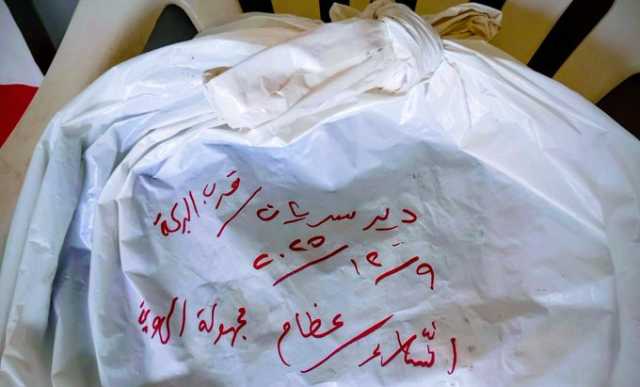 دير سريان / قرب البركة
٩/١٢/٢٠٢٥
أشلاء/عظام مجهولة الهوية